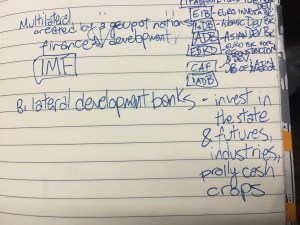 Multilateral
created by a group of nations
finance & development
IMF
EIB
EURO INVESTMENT BK
IsDB
ISLAMIC DEV BK
ADB
ASIAN DEV BK
EBRD
EURO BK FOR
RECONSTRUCTION
& DEV.
CAF
IADB
Bilateral development banks - invest in
the state
& futures,
industries,
prolly cash
crops